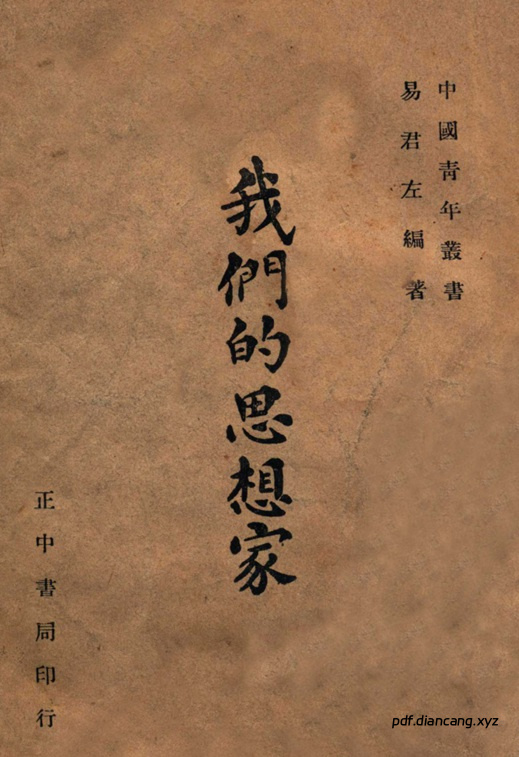 中國青年叢書
易君左編著
我們的思想家
正中書局印行
pdf.diancang.xyz